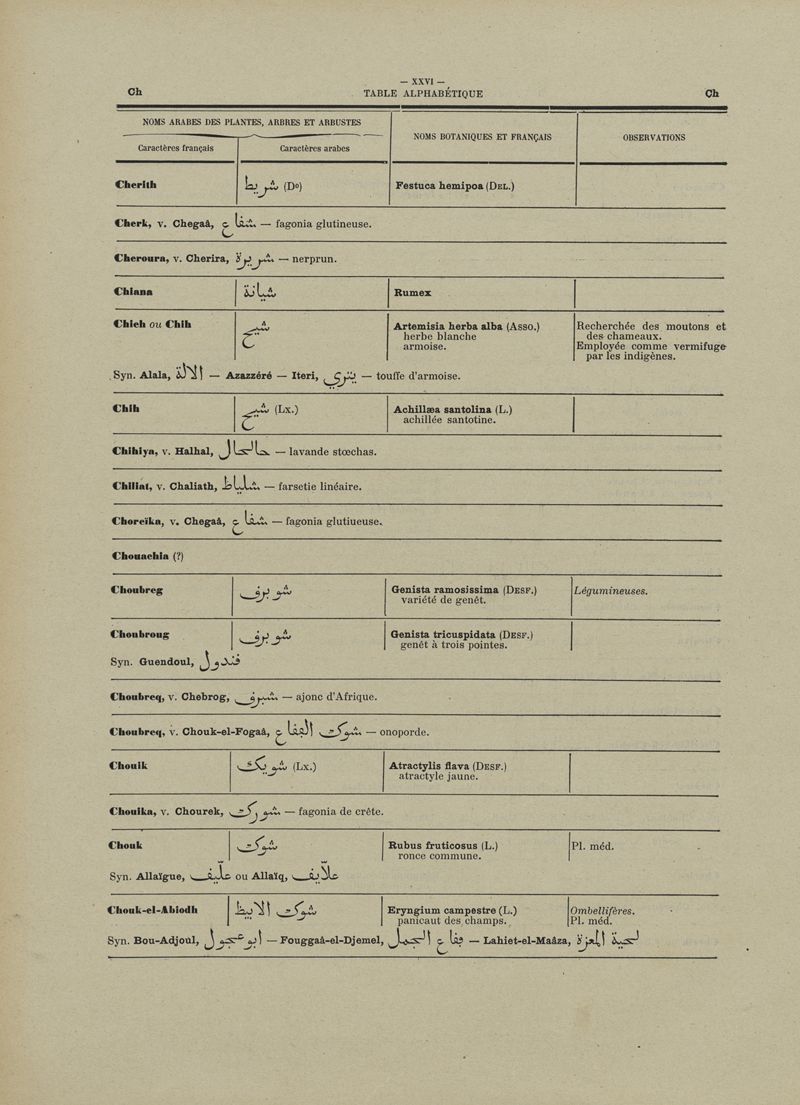 — XXVI —
Ch TABLE ALPHABÉTIQUE Ch
NOMS ARABES DES PLANTES, ARBRES ET ARBUSTES
NOMS BOTANIQUES ET FRANÇAIS
OBSERVATIONS
Caractères français Caractères arabes
Cherith شريط (Dº) Festuca hemipoa (DEL.)
Cherk, v. Chegaâ, شفاع — fagonia glutineuse.
Cheroura, v. Cherira, شريرة — nerprun.
Chiana شيانة Rumex
Chieh ou Chih شيح Artemisia herba alba (ASSO.) Recherchée des moutons et
herbe blanche des chameaux.
armoise. Employée comme vermifuge
par les indigènes.
Syn. Alala, الالة — Azazzéré — Iteri, يتري — touffe d'armoise.
Chih شيح (LX.) Achillæa santolina (L.)
achillée santotine.
Chihiya, v. Halhal, حالحال — lavande stœchas.
Chiliat, v. Chaliath, — farsetie linéaire.
Choreïka, v. Chegaâ, شفاع — fagonia glutiueuse.
Chouachia (?)
Choubreg شوبرف Genista ramosissima (DESF.) Légumineuses.
variété de genêt.
Choubroug شوبرف Genista tricuspidata (DESF.)
genêt à trois pointes.
Syn. Guendoul, فندول
Choubreq, v. Chebrog, شبرف — ajonc d'Afrique.
Choubreq, v. Chouk-el-Fogaâ, شوك الفقاع — onoporde.
Chouik شويك (LX.) Atractylis flava (DESF.)
atractyle jaune.
Chouika, v. Chourek, شورك — fagonia de crête.
Chouk شوك Rubus fruticosus (L.) Pl. méd.
ronce commune.
Syn. Allaïgue, عليف ou Allaïq, علايف
Chouk-el-Abiodh شوك الابيظ Eryngium campestre (L.) Ombellifères.
panicaut des champs. Pl. méd.
Syn. Bou-Adjoul, ابوعجول — Fouggaâ-el-Djemel, فقاع الجمل — Lahiet-el-Maâza, لحية المعزة